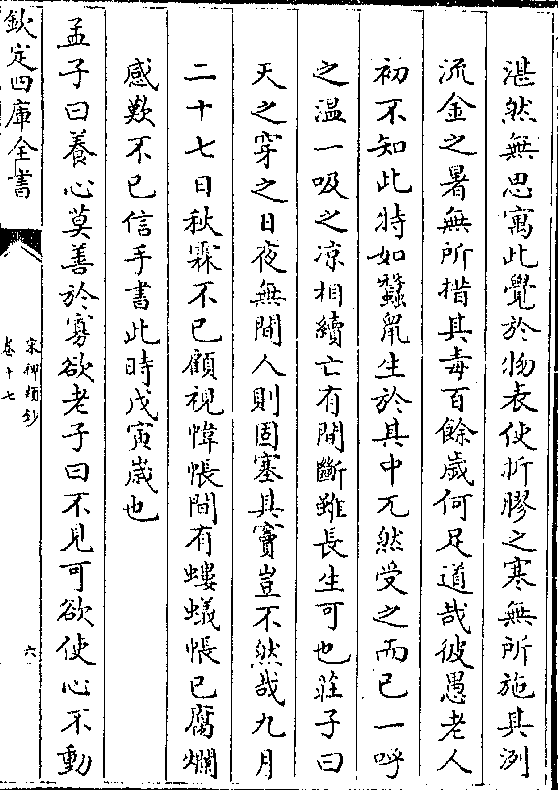 湛然無思寓此覺於物表使折膠之寒無所施其冽
流金之暑無所措其毒百餘歲何足道哉彼愚老人
初不知此特如蠶鼠生於其中兀然受之而已一呼
之温一吸之凉相續亡有間斷雖長生可也莊子曰
天之穿之日夜無間人則固塞其竇豈不然哉九月
二十七日秋霖不已顧視幃帳間有螻蟻帳已腐爛
感歎不已信手書此時戊寅歲也
孟子曰養心莫善於寡欲老子曰不見可欲使心不動
欽定四庫全書
宋稗類鈔
卷十七
六